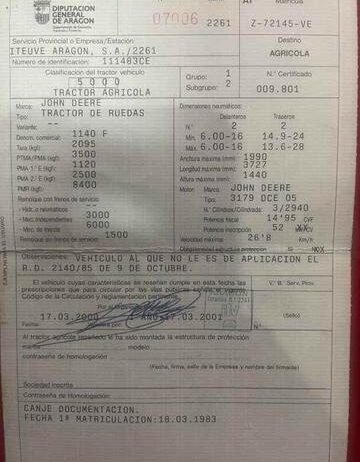 DIPUTACION
GENERAL
DE ARAGON
07006 2261
AT
Matrícula
Z-72145-VE
Servicio Provincial o Empresa/Estación
ITEUVE ARAGON, S.A./2261
Número de identificación: 111483CE
Destino
AGRICOLA
Clasificación del tractor vehículo
5 0 0 0
TRACTOR AGRICOLA
Grupo: 1
Subgrupo: 2
N.º Certificado
009.801
Marca: JOHN DEERE
Tipo: TRACTOR DE RUEDAS
Variante: --
Denom. comercial: 1140 F
Tara (kg): 2095
PTMA/PMA (kg): 3500
PMA 1.ª E (kg): 1120
PMA 2.ª E (kg): 2500
PMR (kg): 8400
Remolque con frenos de servicio:
- Hidr. o neumáticos --
- Mec. independientes 3000
- Mec. de inercia 6000
Remolque sin frenos de servicio: 1500
Dimensiones neumáticos:
Delanteros Traseros
N.º 2 2
Mín. 6.00-16 14.9-24
Máx. 6.00-16 13.6-28
Anchura máxima (mm) 1990
Longitud máxima (mm) 3727
Altura máxima (mm) 1440
Motor: Marca: JOHN DEERE
Tipo: 3179 DCE 05
N.º Cilindros/Cilindrada: 3/2940
Potencia fiscal 14'95 CVF
Potencia inscripción 52
Velocidad máxima 26'8 Km/h
Obligatoriedad estructura protección SI
Observaciones: VEHICULO AL QUE NO LE ES DE APLICACION EL
R.D. 2140/85 DE 9 DE OCTUBRE.
El vehículo cuyas características se reseñan cumple en esta fecha las
prescripciones que para circular por las vías públicas señala el vigente
Código de la Circulación y reglamentación pertinente.
V.º B.º Serv. Prov.
17.03.2000 1 AÑO-17.03.2001
Fecha:
(Sello)
Al tractor agrícola reseñado le ha sido montada la estructura de protección
marca modelo
contraseña de homologación
(Fecha, firma, sello de la Empresa y nombre del firmante)
Sociedad inscrita
Contraseña de Homologación:
CANJE DOCUMENTACION.
FECHA 1ª MATRICULACION:18.03.1983